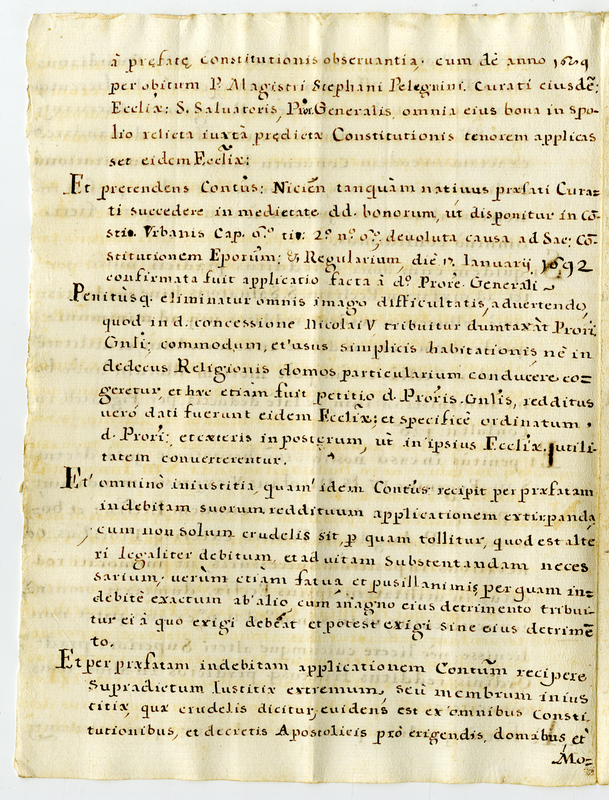 à prefatę Constitutionis observantia. cum dē anno 1629
per obitum P. Magistri Stephani Pelegrini. Curati eiusdē:
Ecclīæ: S. Salvatoris, Prōr. Generalis omnia eius bona in spo-
lio relicta iuxtà predictæ Constitutionis tenorem applicas
set eidem Ecclīæ:
Et pretendens Contūs: Nicien tanquàm nativus præfati Cura=
ti succedere in medietate dd. bonorum, ùt disponitur in Cō=
stit. Vrbanis Cap. tit: 2.º n.º devoluta causa ad Sac: Cō=
stitutionem Eporūm: & Regularium, diē 17. Ianuarij 1692
confirmata fuit applicatio facta à d.º Prore. Generali ~
Penitùsq. eliminatur omnis imago difficultatis, advertendo,
quod in d. concessione Nicolai V tribuitur dumtaxàt Prori
Gnli; commodum, et usus simplicis habitationis nè in
dedecus Religionis domos particularium conducere co=
geretur, et hæc etiam fuit petitio d. Proris. Gnlis, redditus
verò dati fuerunt eidem Ecclīæ; et specificè ordinatum
d. Prori; et cæteris in posterum, ùt in ipsius Ecclīæ. utili-
tatem converterentur.
Et omninò iniustitia, quam idem Contūs recipit per præfatam
indebitam suorum reddituum applicationem extirpanda,
cum non solum crudelis sit, p quam tollitur, quod est alte
ri legaliter debitum, et ad vitam Substentandam neces
sarium, verùm etiàm fatua et pusillanimis per quam in=
debitè exactum ab alio, cum magno eius detrimento tribui=
tur ei à quo exigi debeat et potest exigi sine eius detrimē
to.
Et per præfatam indebitam applicationem Contūm recipere
Supradictum Iustitiæ extremum, seù membrum inius
titiæ, quæ crudelis dicitur, evidens est ex omnibus Consti.
tutionibus, et decretis Apostolicis prò erigendis. domabus, et
Mo=